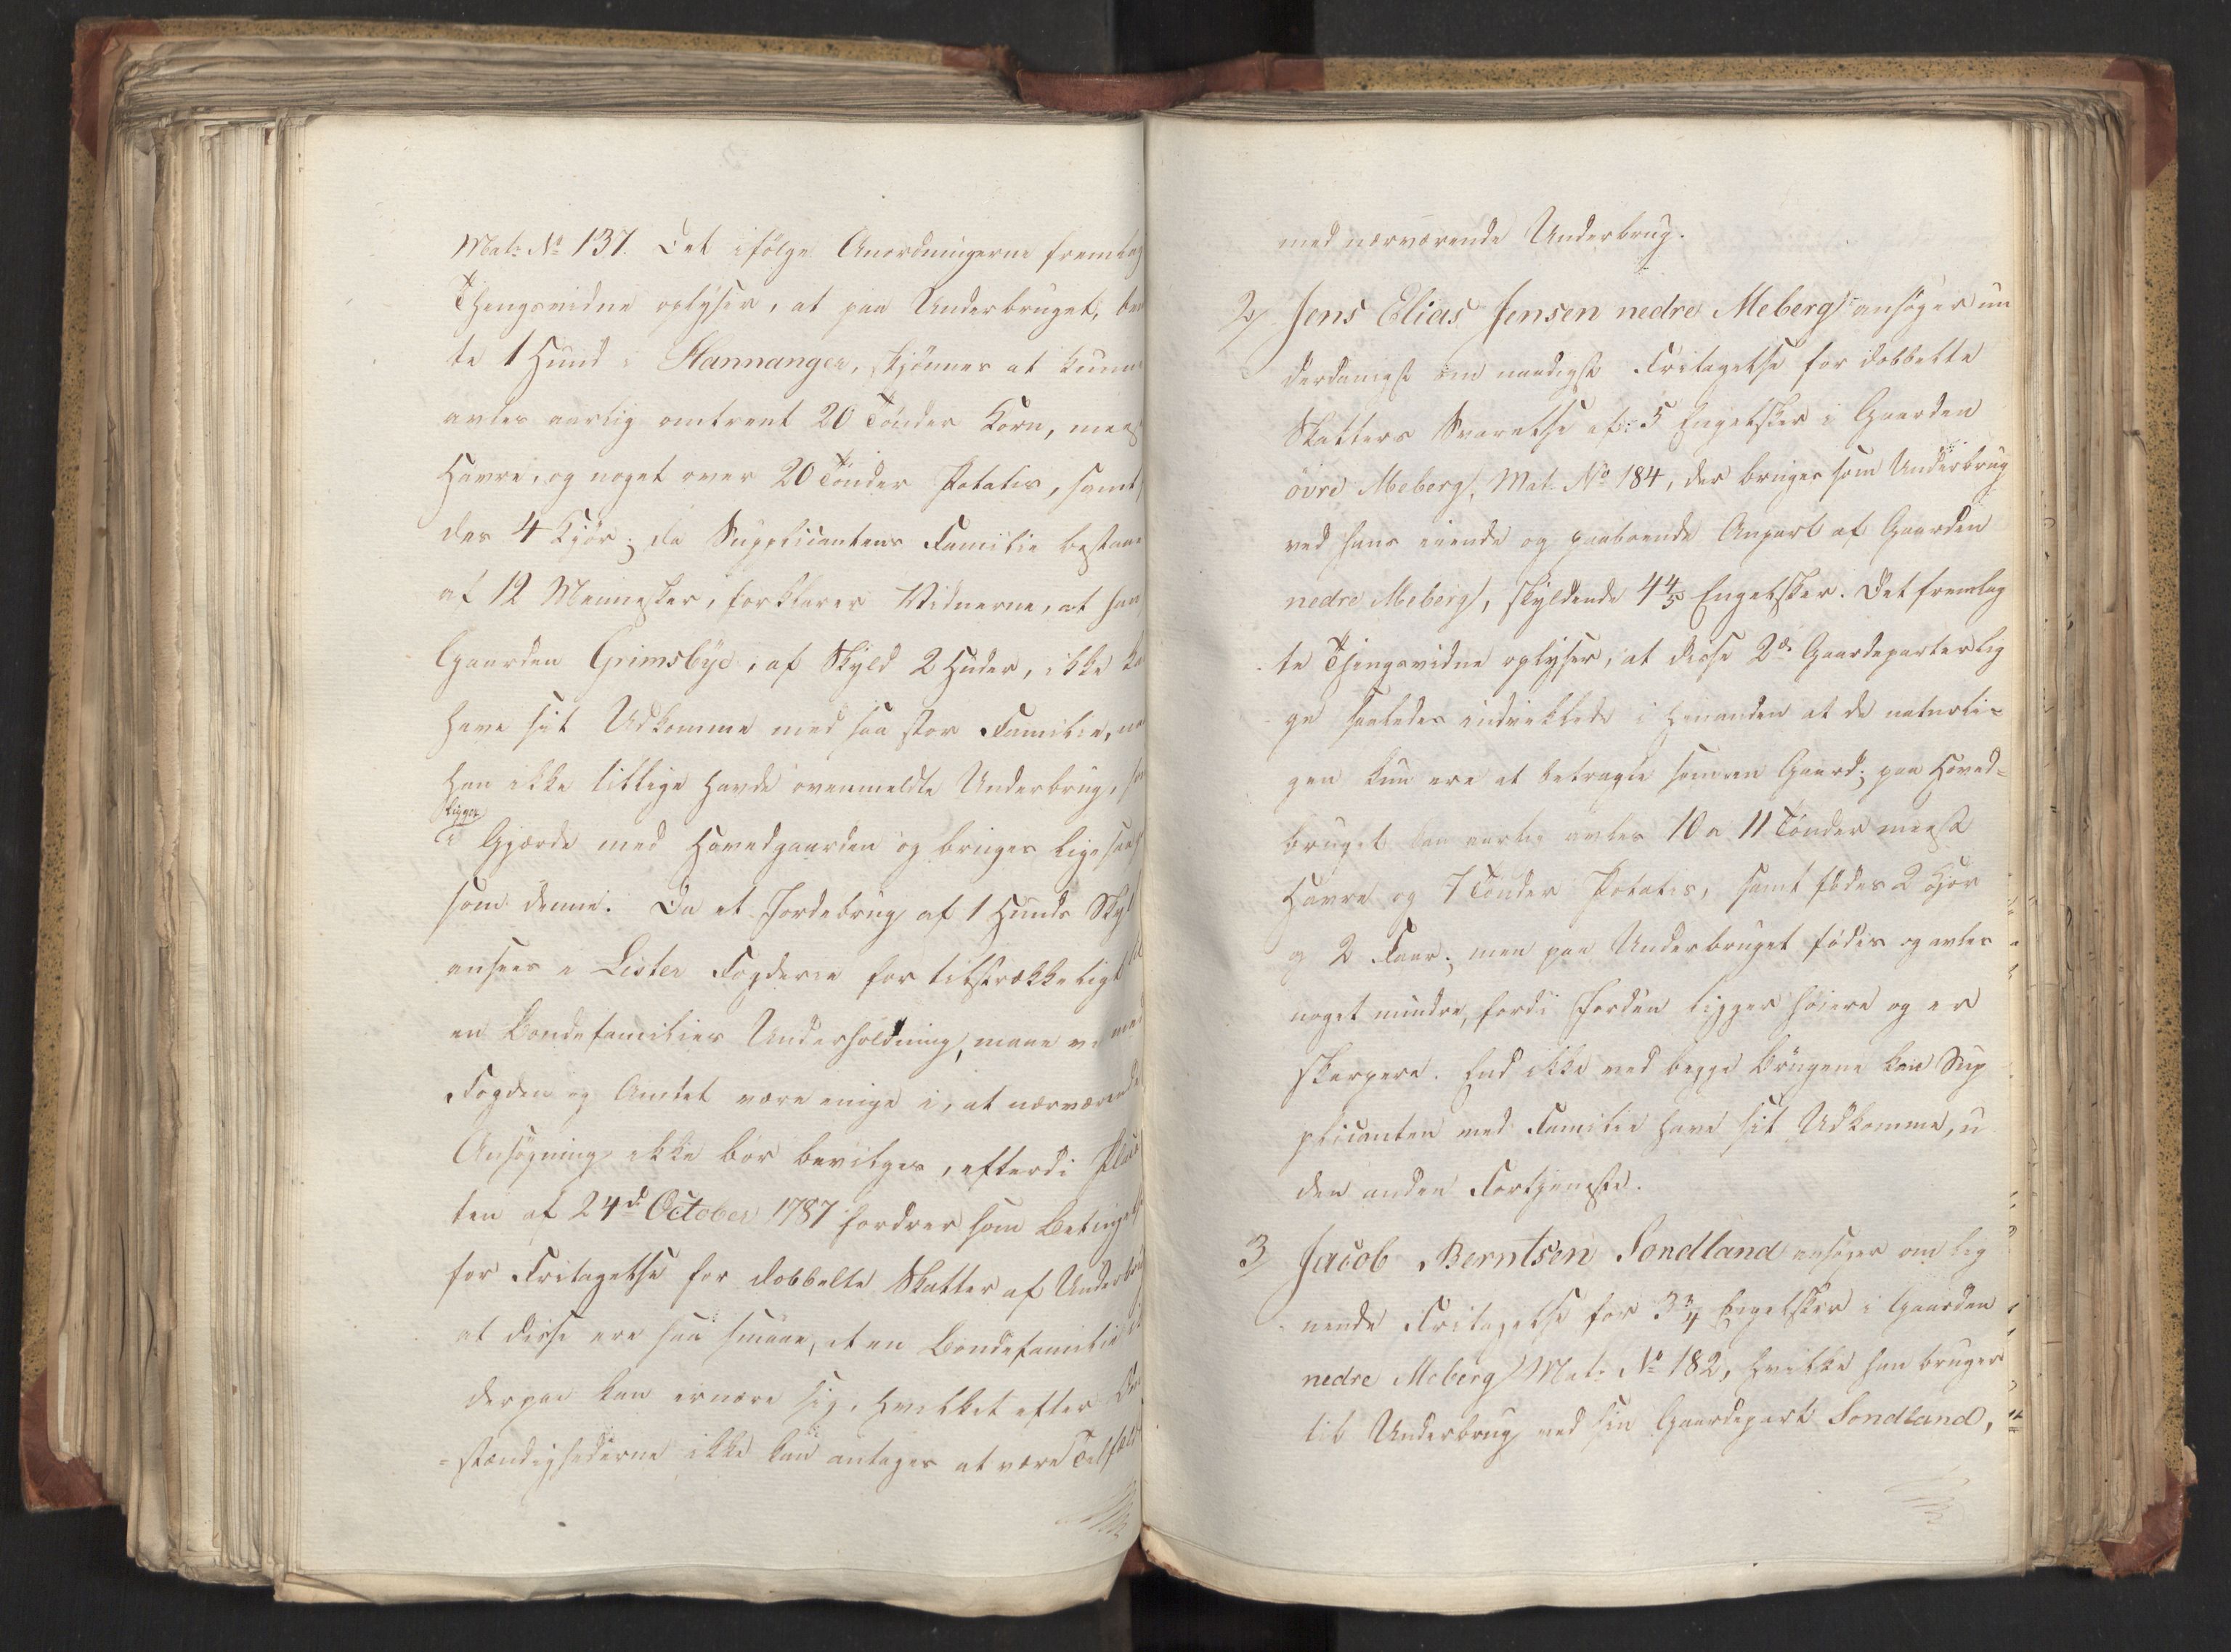 Mat: No 137. Det ifölge Anordningerne fremlag
Thengsvidne oplyser, at paa Underbruget, be
te 1 Hund i Hannanger, skjönnes at kunne
avles aarlig omtrent 20 Tönder Korn, meest
Havre, og noget over 20 Tönder Potatis, samt
des 4 Kjör; da Supplicantens Familie bestaae
af 12 Mennesker, forklarer Vidnerne, at han
Gaarden Grimsbye, af Skyld 2 Huder, ikke ka
have sit Udkomme med saa stor Familie, na
han ikke tillige havde ovenmeldte Underbrug, som
ligger
i Gjærde med Hovedgaarden og bruges ligesaa
som denne. Da et Jordebrug af 1 Hunds Skyld
ansees i Lister Fogderie for tilstrækkeligt til
en Bondefamilies Underholdning, maae vi med
Fogden og Amtet være enige i, at nærværende
Ansögning ikke bör bevilges, efterdi Placa
ten af 24de October 1787 fordrer som Betingelse
for Fritagelse for dobbelte Skatter af Underbrug
at disse ere saa smaae, at en Bondefamilie ei
derpaa kan ernære sig, hvilket efter Om
=stændighederne ikke kan antages at være Tilfæld
med nærværende Underbrug.
2, Jens Elias Jensen nedre Meberg ansöger un
derdanigst om naadigst Fritagelse for dobbelte
Skatters Svarelse af 5 Engelsker i Gaarden
övre Meberg, Mat. No 184, der bruges som Underbrug
ved hans eiende og paaboende Anpart af Gaarden
nedre Meberg, skyldende 4 4/5 Engelsker. Det fremlag
te Thingsvidne oplyser, at disse 2de Gaardeparter lig
ge saaledes indviklede i hinanden at de naturli=
gen kun ere at betragte som een Gaard; paa Hoved=
bruget kan aarlig avles 10 a 11 Tönder meest
Havre og 7 Tönder Potatis, samt födes 2 Kjör
og 2 Faar; men paa Underbruget födes og avles
noget mindre, fordi Jorden ligger höiere og er
skarpere. End ikke med begge Brugene kan Sup
plicanten med Familie have sit Udkomme, u
den anden Fortjeneste.
3, Jacob Berntsen Sondland ansöger om lig
nende Fritagelse for 3 3/4 Engelsker i Gaarden
nedre Meberg Mat: No 182, hvilke han bruger
til Underbrug ved sin Gaardepart Sondland,